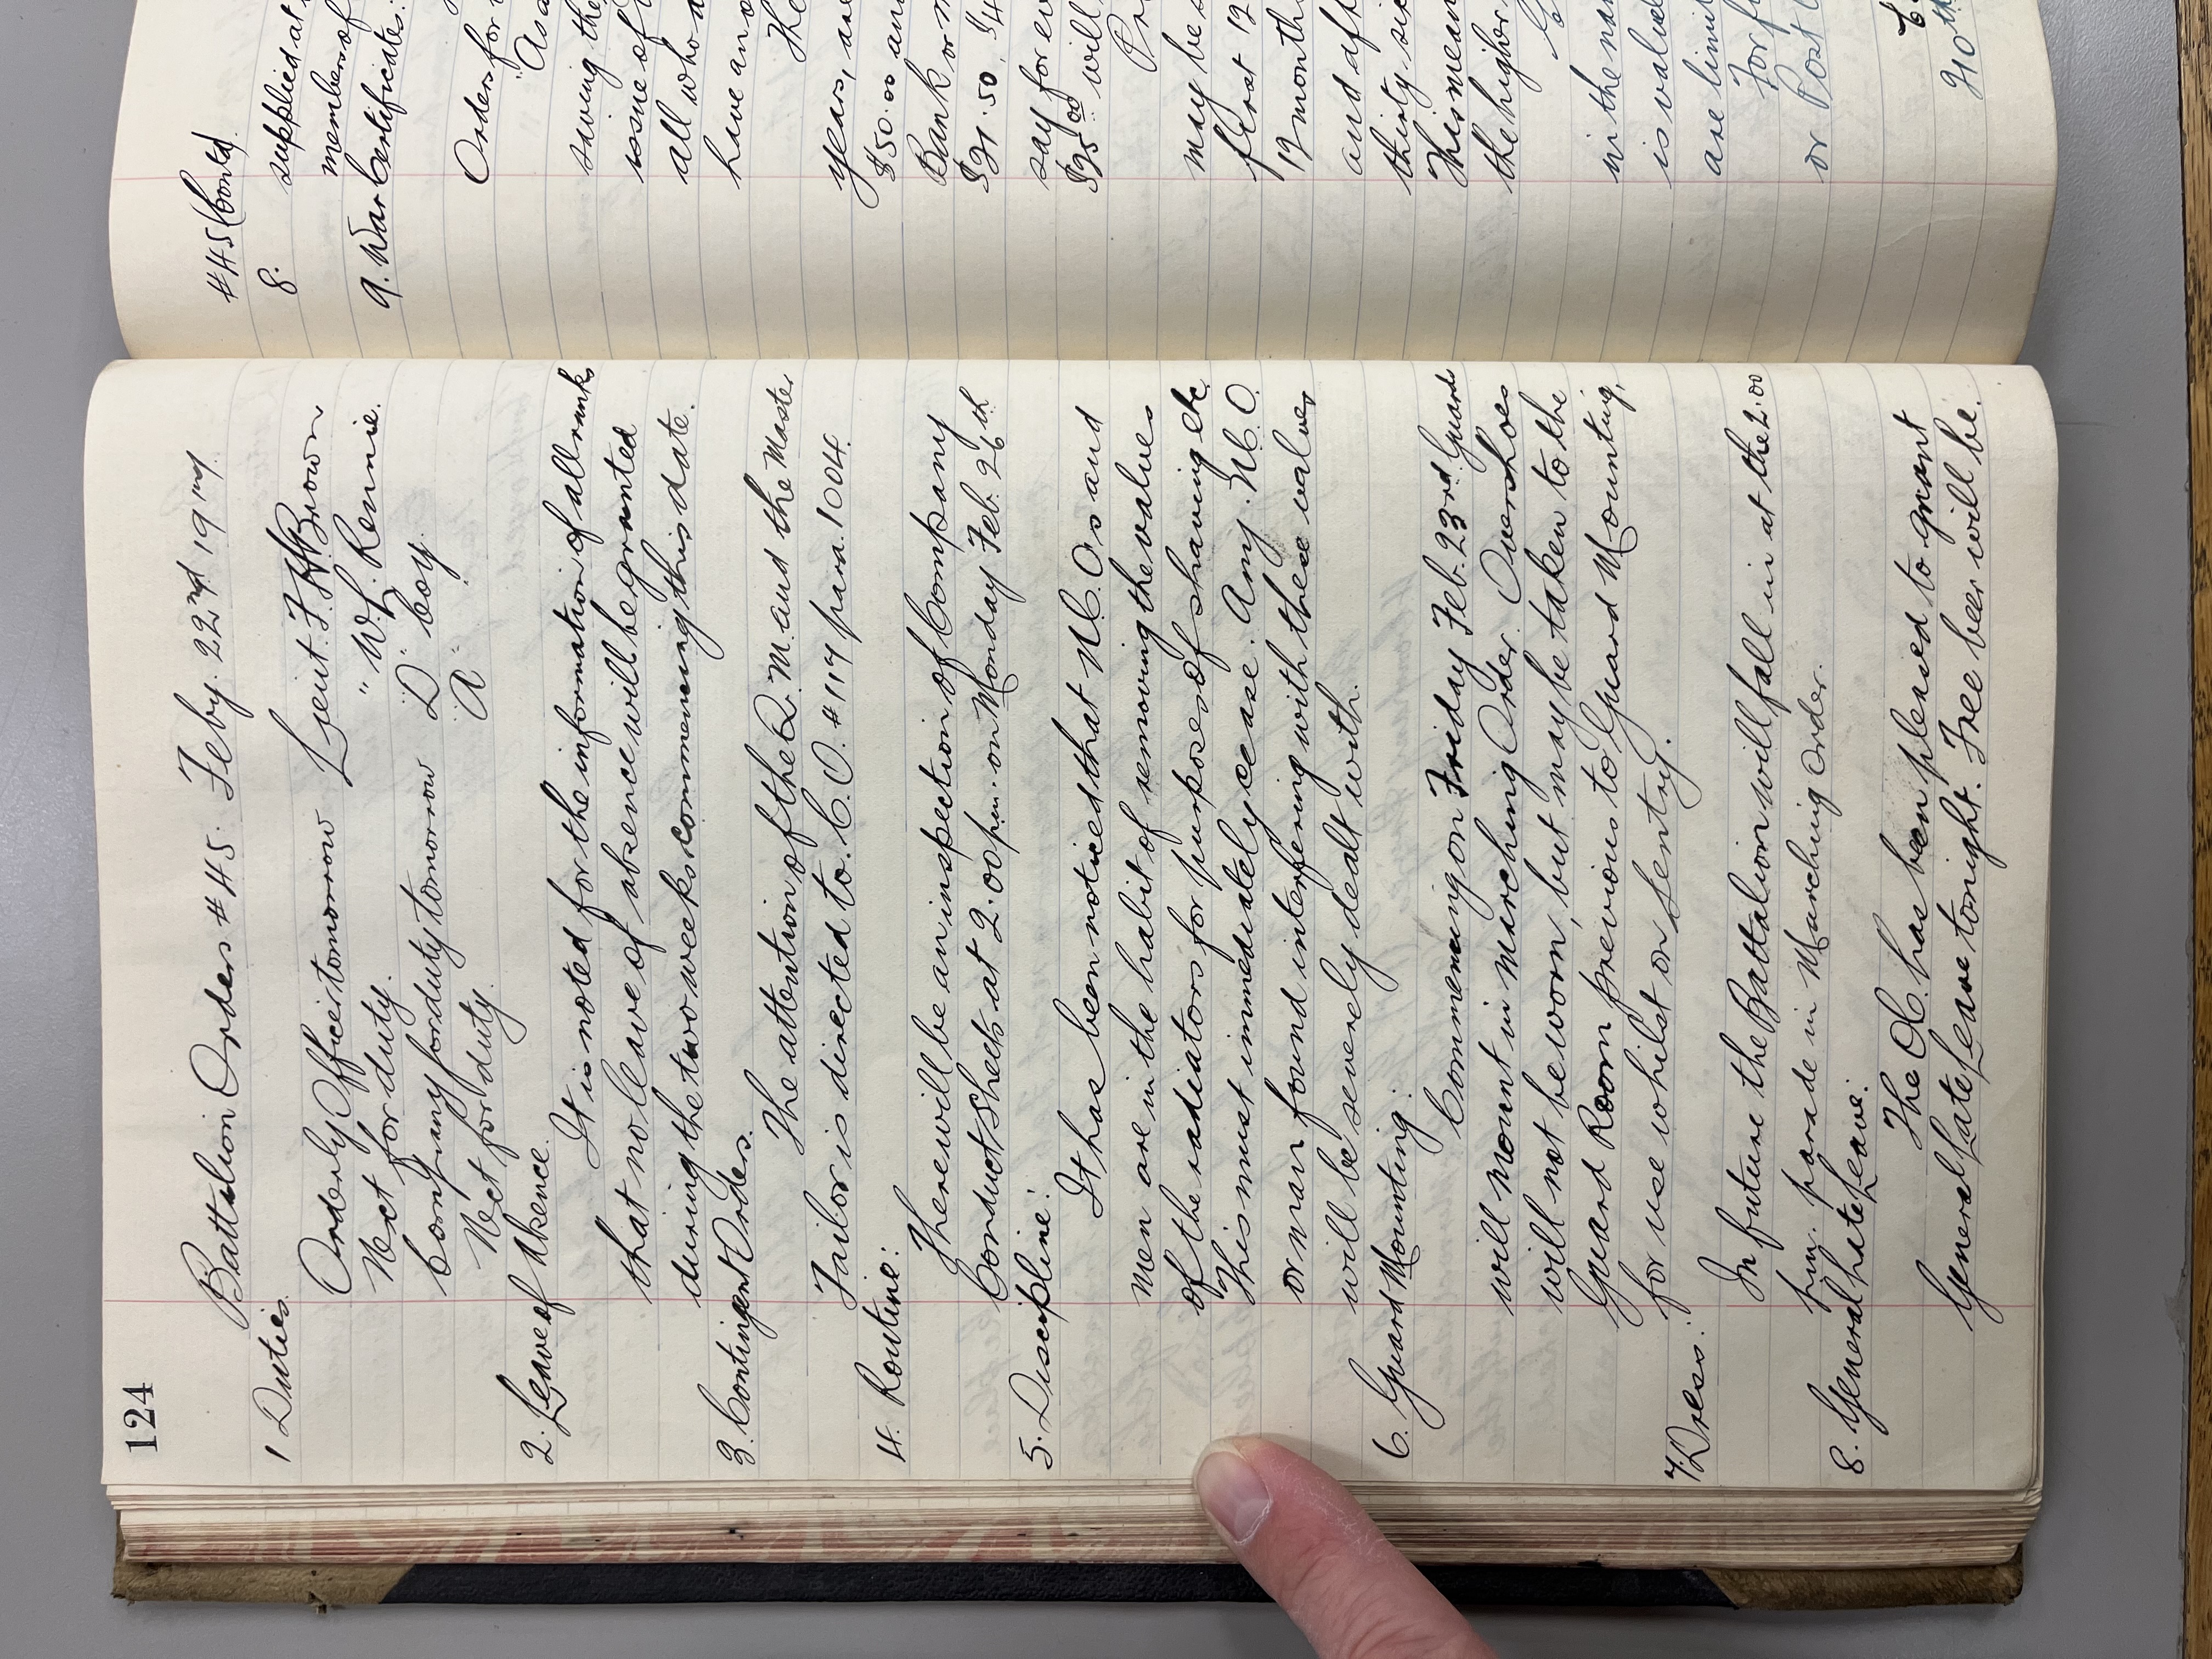 124
Battalion Orders #45. Feby. 22nd 1917
1 Duties.
Orderly Officer tomorrow Lieut. F.H. Brown
Next for duty. " W.L. Rennie.
Company for duty tomorrow "D" Coy.
Next for duty. "A"
2. Leave of Absence.
It is noted for the information of all ranks
that no leave of absence will be granted
during the two weeks commencing this date.
3. Contingent Orders.
The attention of the Q.M. and the Master
Tailor is directed to C.O. #117 para. 1004.
4. Routine:
There will be an inspection of Company
Conduct Sheets at 2.00 pm. on Monday Feb. 26th
5. Discipline:
It has been noticed that N.C.O's and
men are in the habit of removing the valves
of the radiators for purposes of shaving etc.
This must immediately cease. Any N.C.O.
or man found interfering with these valves
will be severely dealt with.
6. Guard Mounting:
Commencing on Friday Feb. 23rd Guards
will mount in Marching Order. Overshoes
will not be worn, but may be taken to the
Guard Room previous to Guard Mounting,
for use whilst on Sentry.
7. Dress:
In future the Battalion will fall in at the 2.00
p.m. parade in Marching Order.
8. General Late Leave:
The O.C. has been pleased to grant
General Late Leave tonight. Free beer will be.
#45 (Contd)
8. supplied at
members of
9. War Certificates:
Orders for
"As a
saving the
issue of
all who a
have an o
The
years, are
$50.00 an
Bank or
$21.50. $4
say for ev
$25.00 will
may be s
first 12
12 month
and aft
thirty si
This mean
the higher
in the na
is valued
are limit
For f
or Post
or
210th